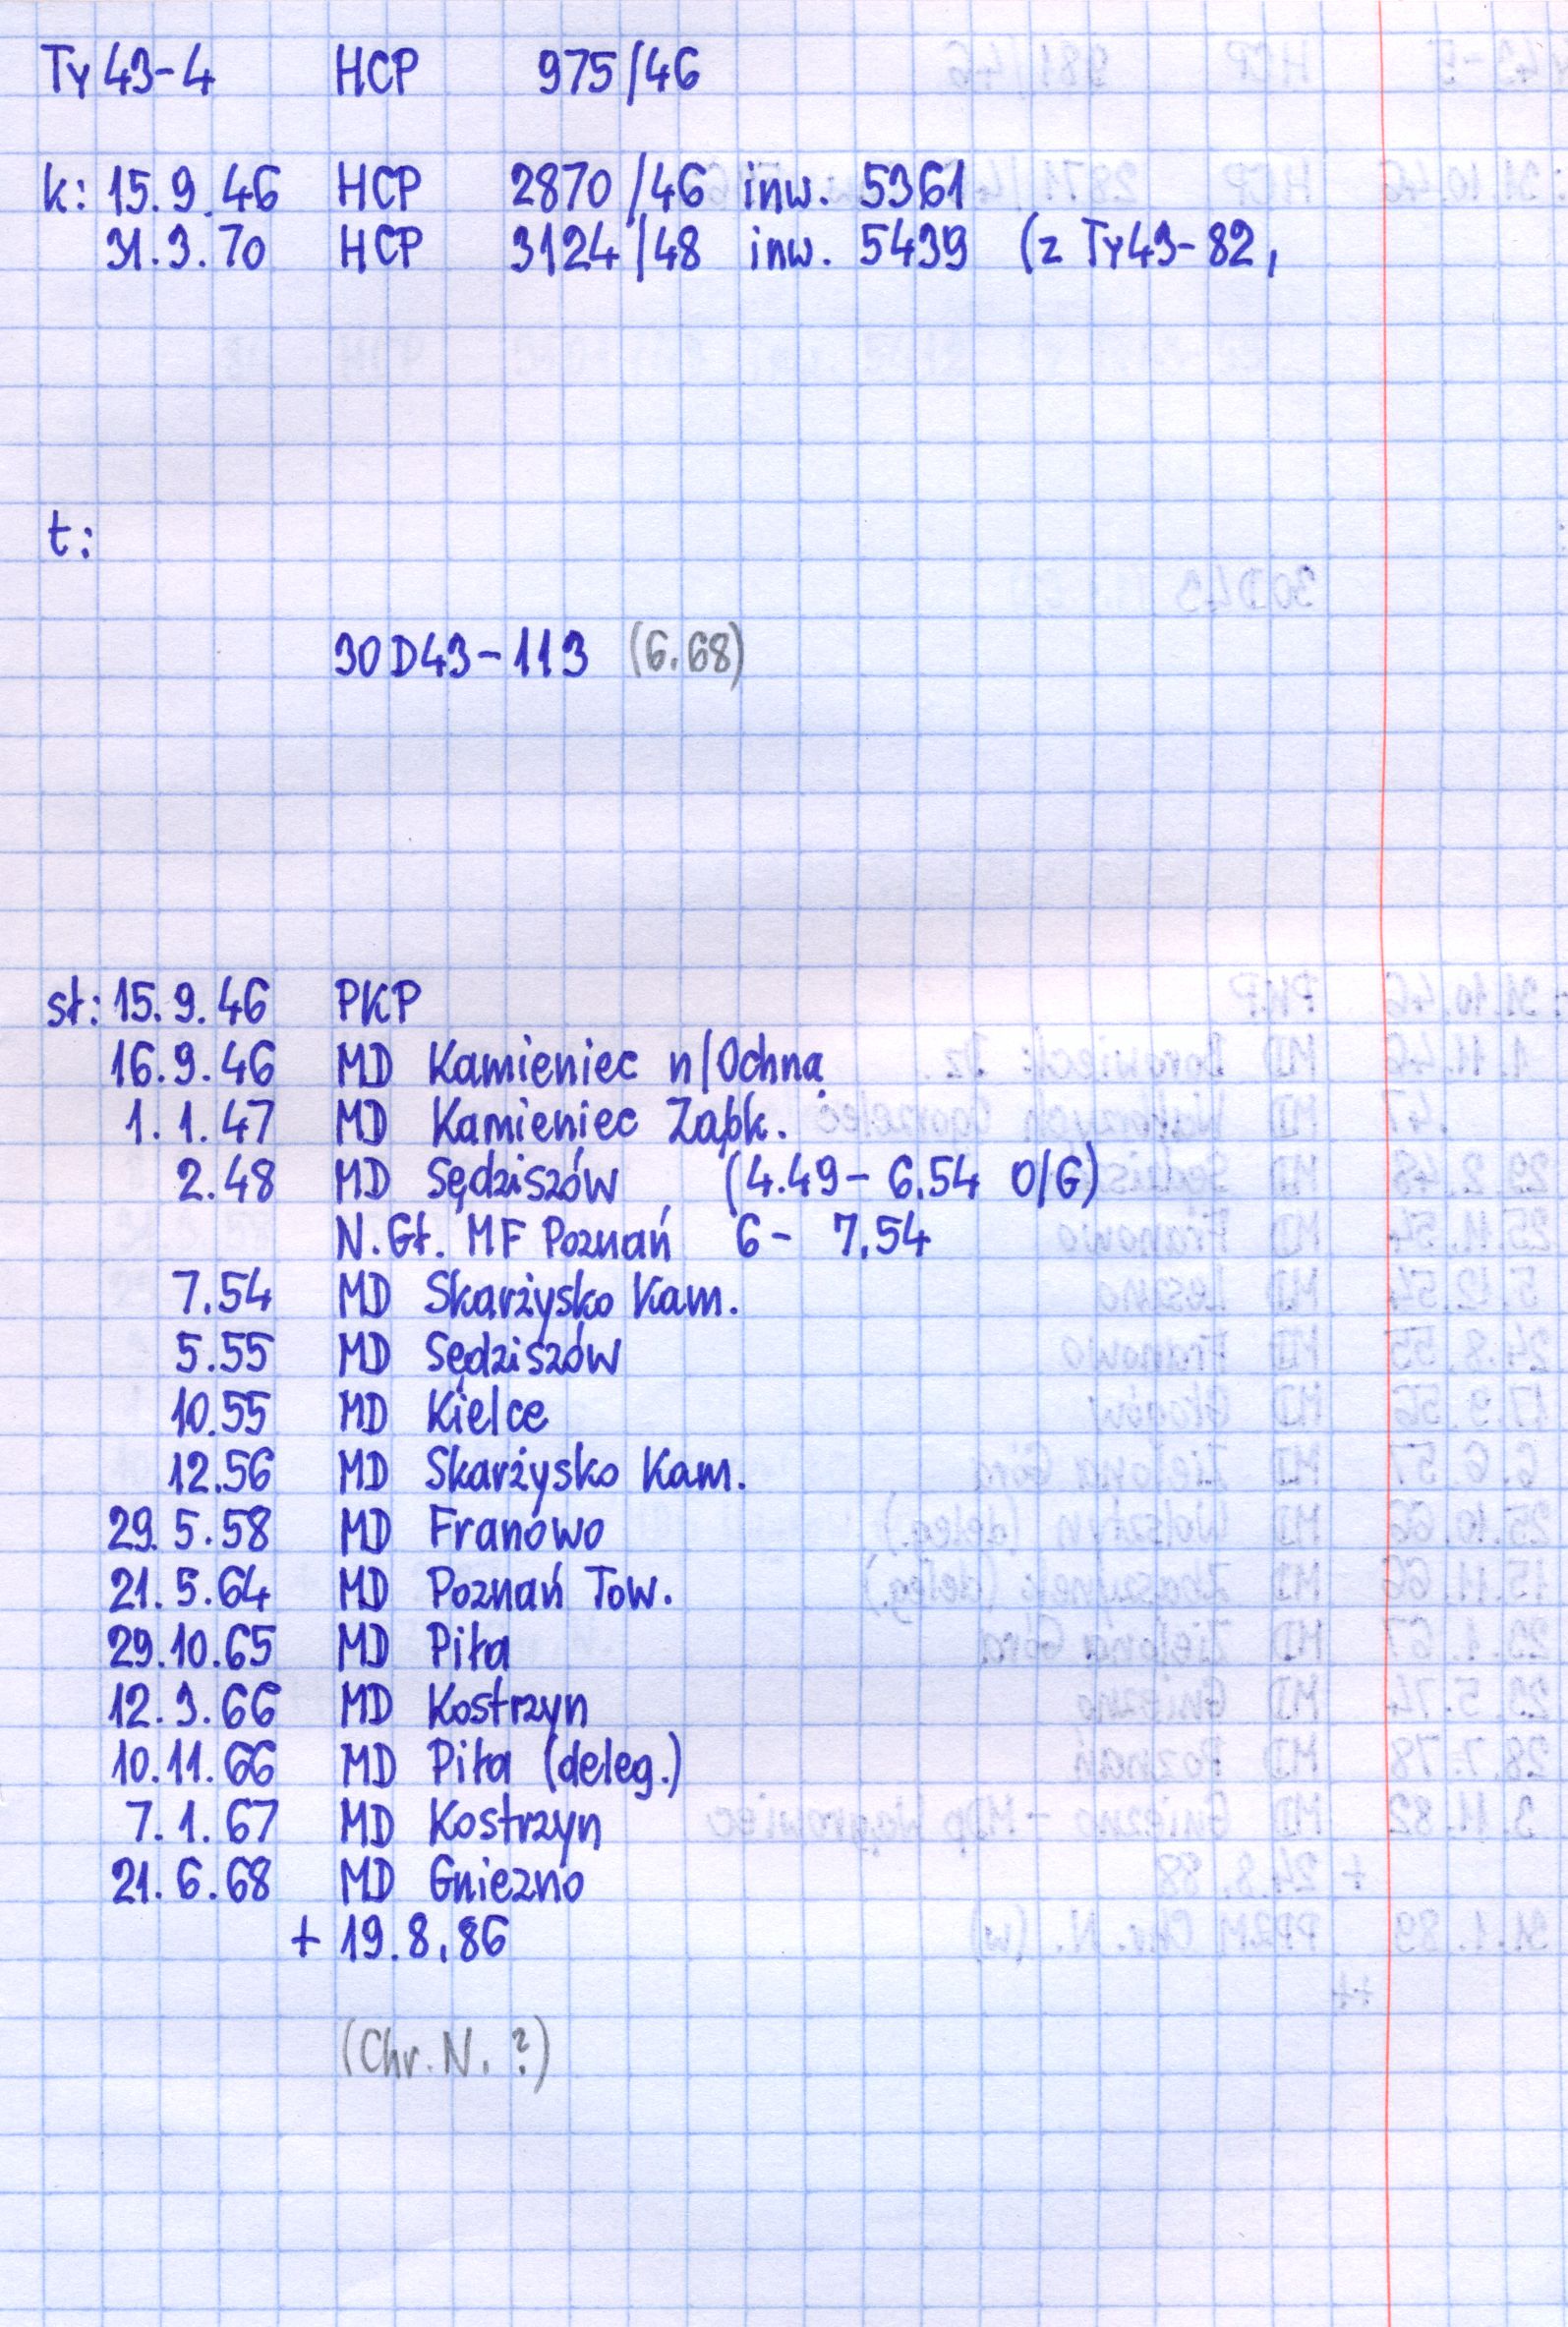 Ty43-4 HCP 975/46
k: 15.9.46 HCP 2870/46 inw. 5361
31.3.70 HCP 3124/48 inw. 5439 (z Ty43-82,
t:
30D43-113 (6.68)
st: 15.9.46 PKP
16.9.46 MD Kamieniec n/Ochną
1.1.47 MD Kamieniec Ząbk.
2.48 MD Sędziszów (4.49-6.54 O/G)
N.Gł. MF Poznań 6- 7.54
7.54 MD Skarżysko Kam.
5.55 MD Sędziszów
10.55 MD Kielce
12.56 MD Skarżysko Kam.
29.5.58 MD Franowo
21.5.64 MD Poznań Tow.
29.10.65 MD Piła
12.3.66 MD Kostrzyn
10.11.66 MD Piła (deleg.)
7.1.67 MD Kostrzyn
21.6.68 MD Gniezno
+ 19.8.86
(Chr. N. ?)